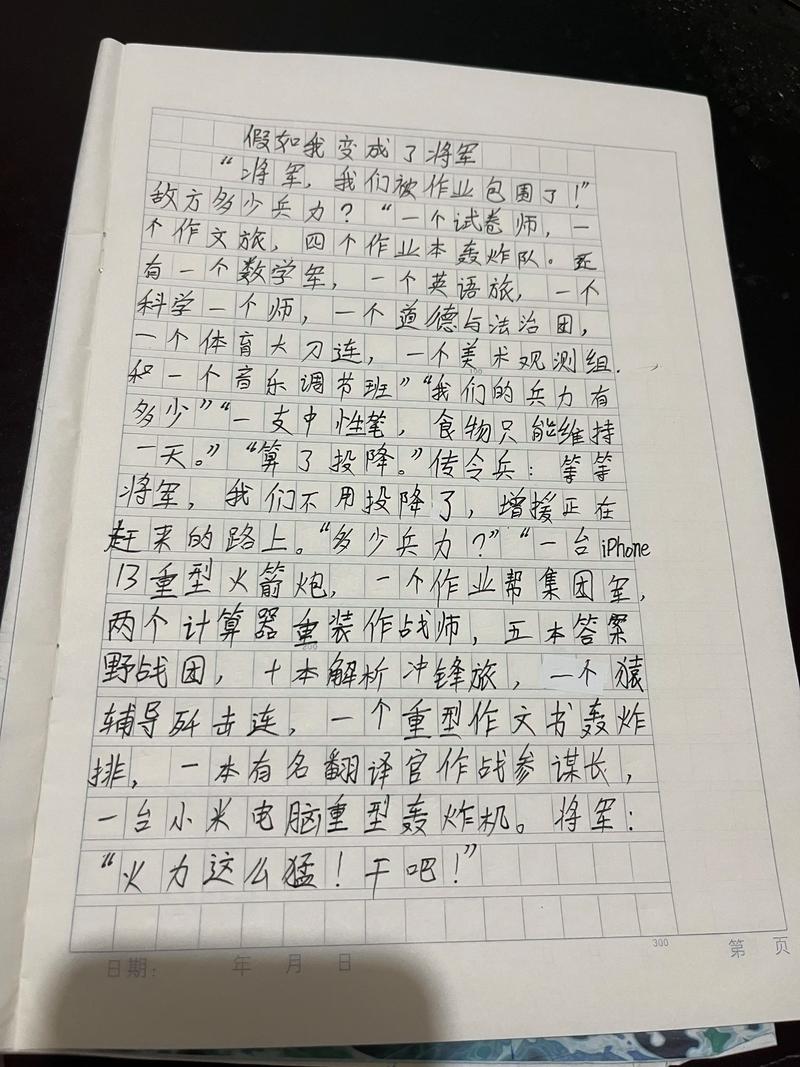 假如我变成了将军
“将军,我们被作业包围了!”
敌方多少兵力?“一个试卷师,一
个作文旅,四个作业本轰炸队。还
有一个数学军,一个英语旅,一个
科学一个师,一个道德与法治团,
一个体育大刀连,一个美术观测组.
和一个音乐调节班”“我们的兵力有
多少”“一支中性笔,食物只能维持
一天。”“算了投降。”传令兵:等等
将军,我们不用投降了,增援正在
赶来的路上。“多少兵力?”“一台iPhone
13重型火箭炮,一个作业帮集团军,
两个计算器重装作战师,五本答案
野战团,十本解析冲锋旅,一个猿
辅导歼击连,一个重型作文书轰炸
排,一本有名翻译官作战参谋长,
一台小米电脑重型轰炸机。将军:
“火力这么猛!干吧!”
300
第 页
日期: 年 月 日